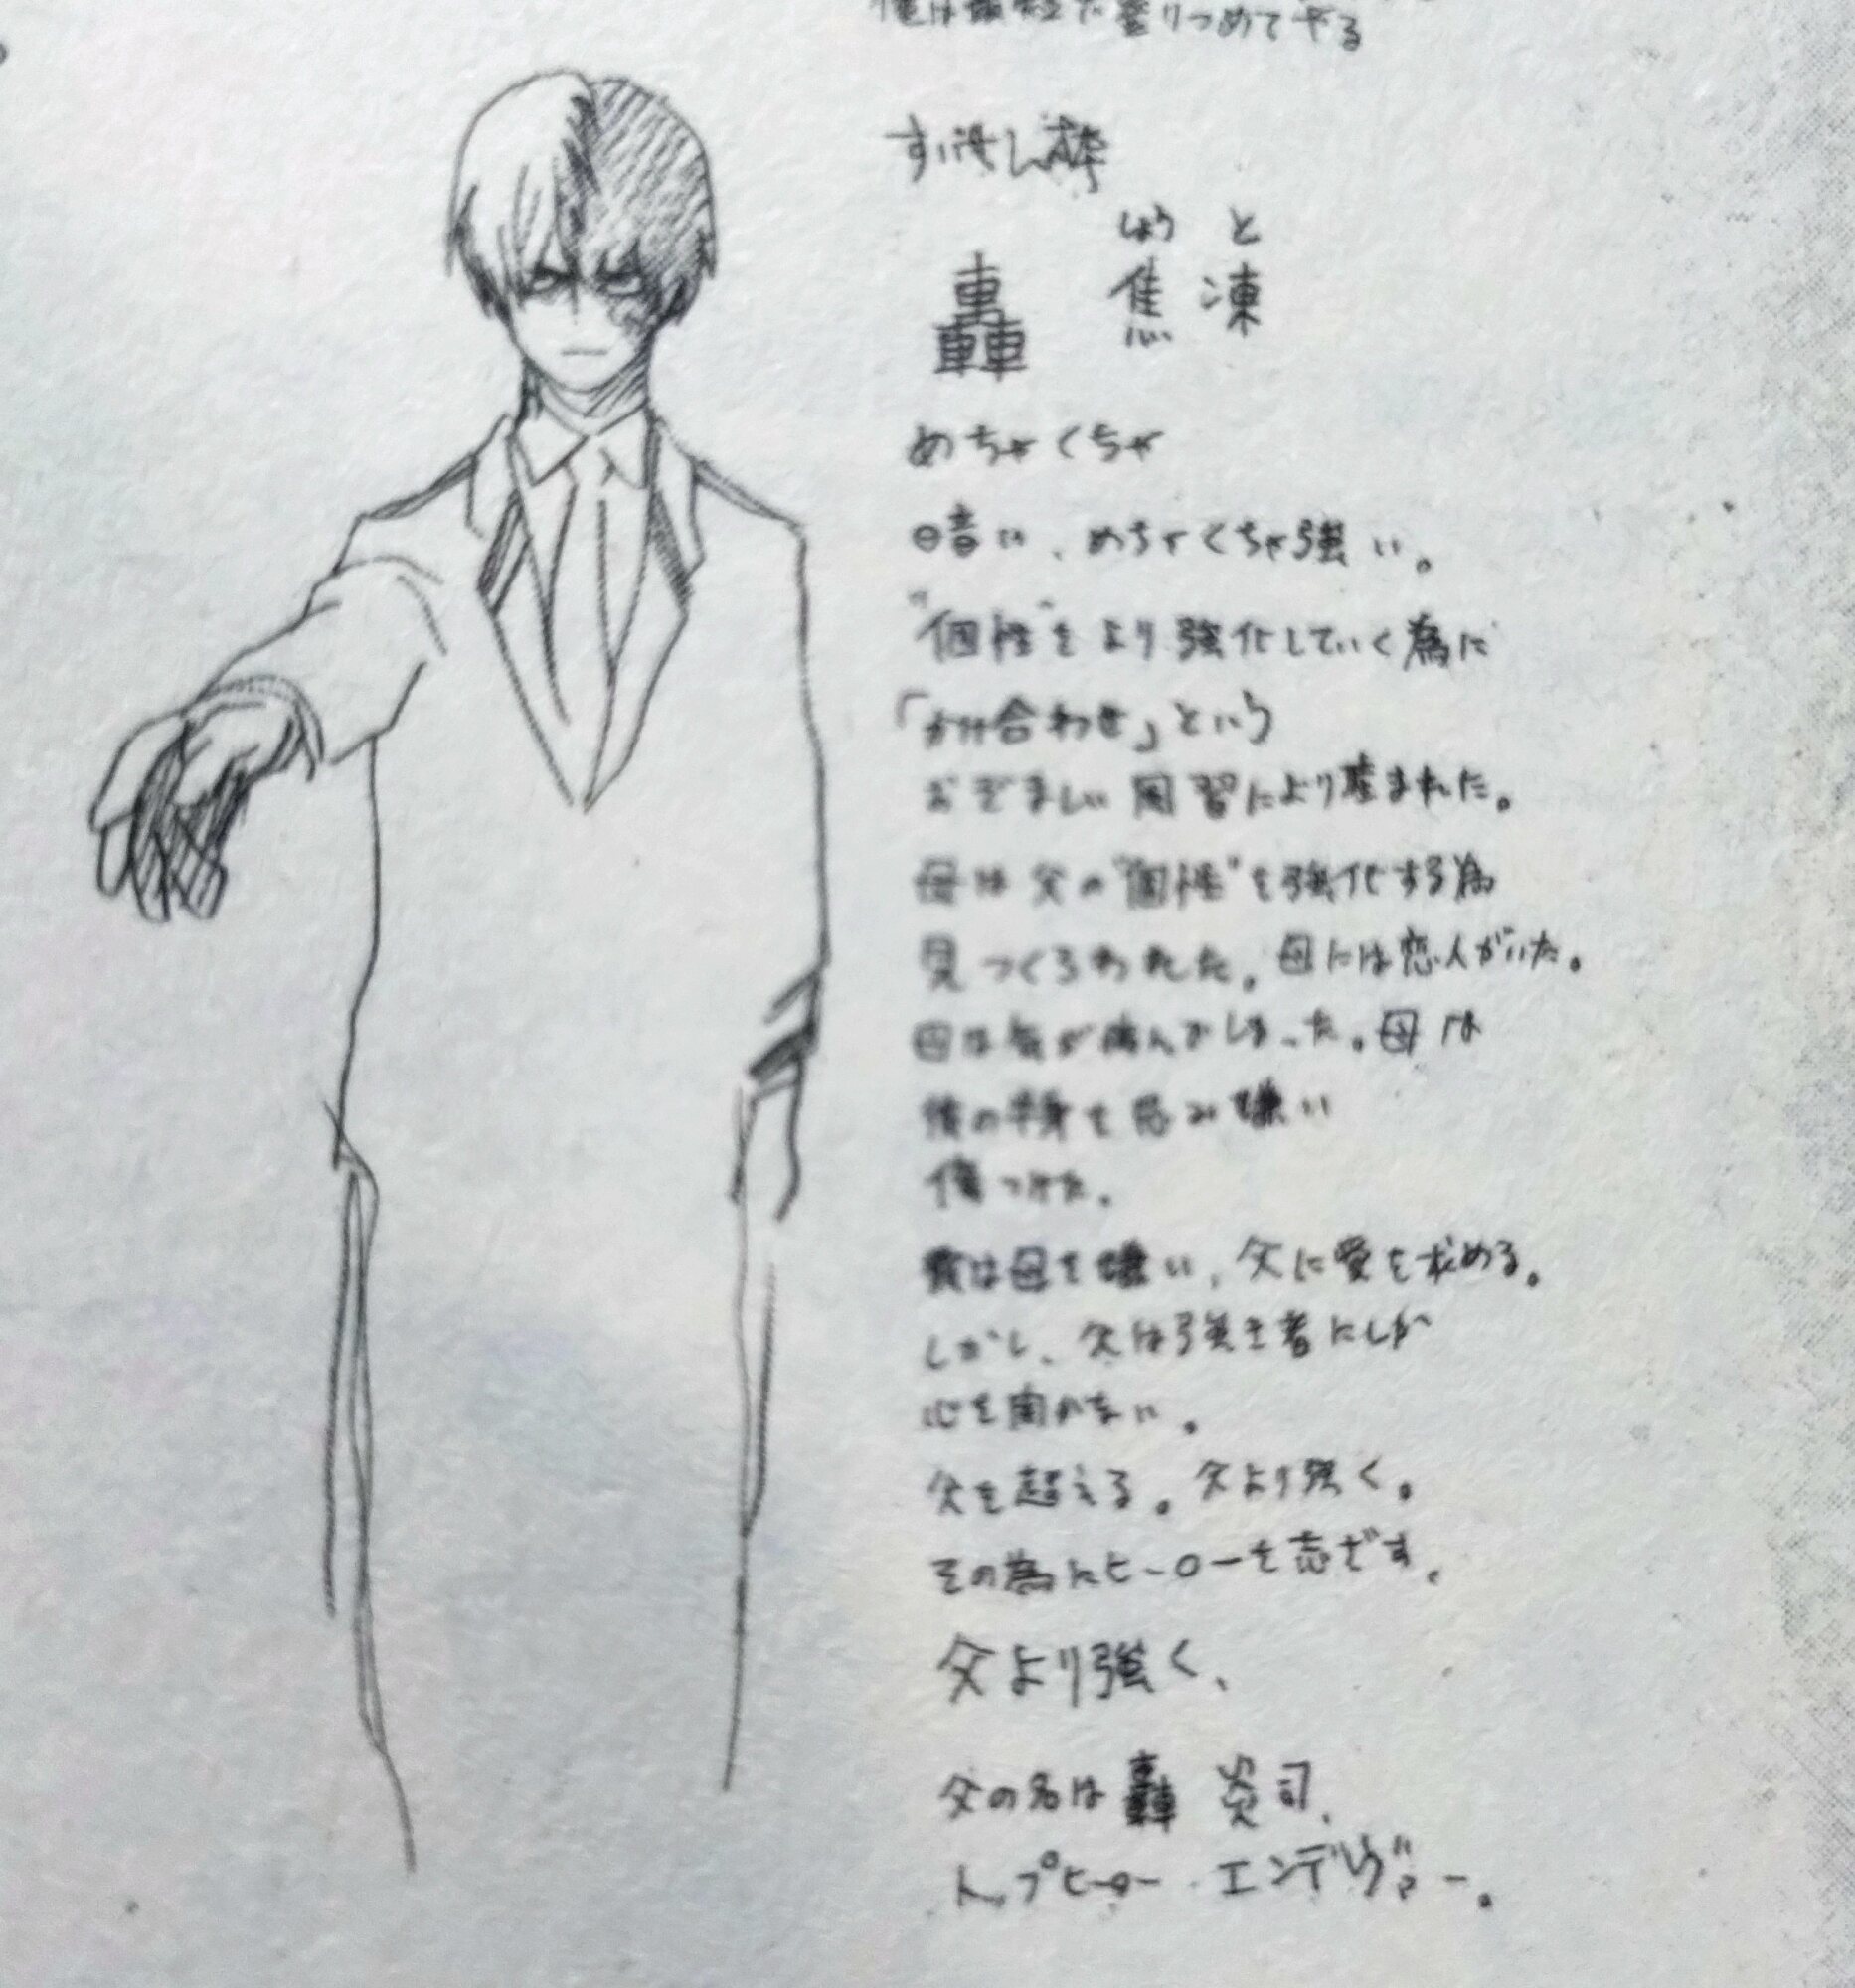 俺は最短で登りつめてやる
すいせん枠
しょう と
轟 焦凍
めちゃくちゃ
暗い、めちゃくちゃ強い。
"個性"をより強化していく為に
「かけ合わせ」という
おぞましい因習により産まれた。
母は父の"個性"を強化する為
見つくろわれた。母には恋人がいた。
母は気が病んでしまった。母は
彼の半身を忌み嫌い
傷つけた。
彼は母を嫌い、父に愛を求める。
しかし、父は強き者にしか
心を開かない。
父を超える。父より強く。
その為にヒーローを志ざす。
父より強く、
父の名は轟 炎司、
トップヒーロー エンデヴァー。